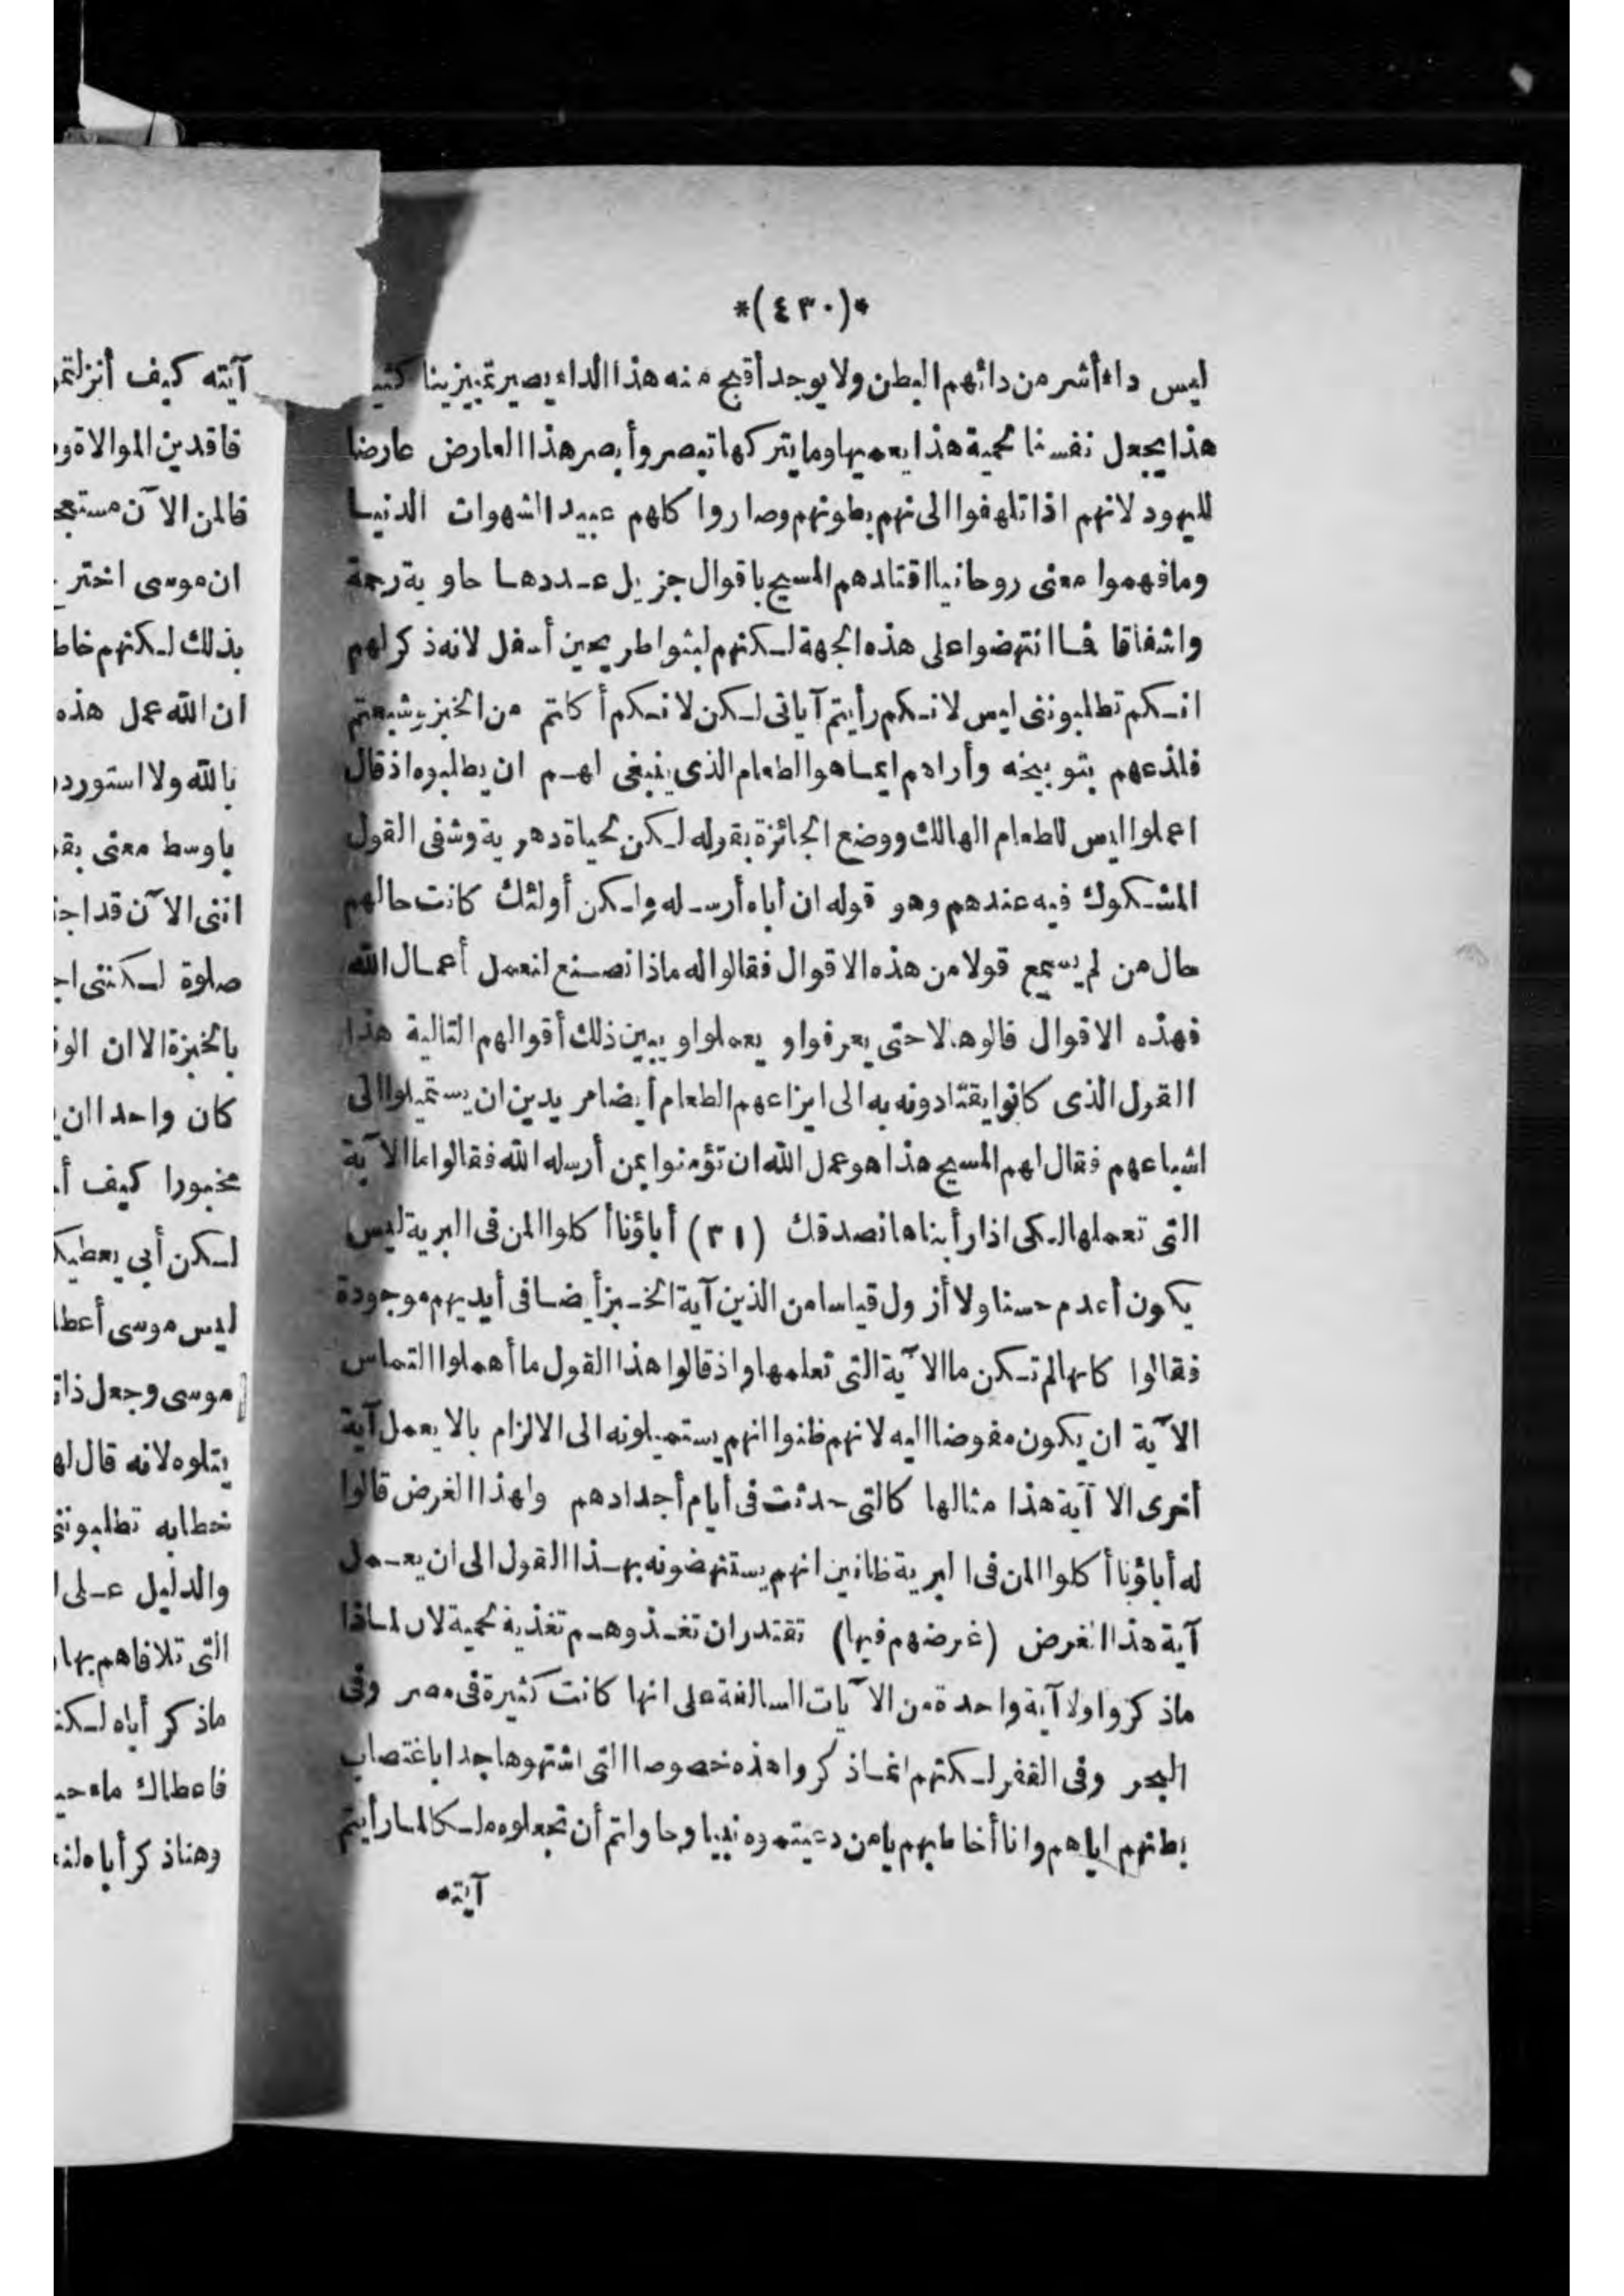 *(٤٣٠)*
ليس داء أشر من دائهم البطن ولا يوجد أقبح منه هذا الداء يصير تمييزينا
هذا يجعل نفسنا لحمية هذا يعميها وما يتركها تبصر وأبصر هذا العارض عارضا
لليهود لانهم اذا تلهفوا الى نهم بطونهم وصاروا كلهم عبيدا الشهوات الدنيا
وما فهموا معنى روحانيا اقتادهم المسيح باقوال جزيل عددها حاوية رحمة
واشفاقا فما انتهضوا على هذه الجهة لكنهم لبثوا طريحين أسفل لانه ذكر لهم
انكم تطلبوننى ليس لانكم رأيتم آياتى لكن لانكم أكلتم من الخبز وشبعتم
فلذعهم بتوبيخه وأراهم ايما هو الطعام الذى ينبغى لهم ان يطلبوه اذ قال
اعملوا ليس للطعام الهالك ووضع الجائزة بقوله لكن لحياة دهرية وشفى القول
المشكوك فيه عندهم وهو قوله ان أباه أرسله ولكن أولئك كانت حالهم
حال من لم يسمع قولا من هذه الاقوال فقالوا له ماذا نصنع لنعمل أعمال الله
فهذه الاقوال قالوها لا حتى يعرفوا و يعملوا ويبين ذلك أقوالهم التالية هذا
القول الذى كانوا يقتادونه به الى ايزاعهم الطعام أيضا مريدين ان يستميلوا الى
اشباعهم فقال لهم المسيح هذا هو عمل الله ان تؤمنوا بمن أرسله الله فقالوا ما الآية
التى تعملها لكى اذا رأيناها نصدقك (٣١) أباؤنا أكلوا المن فى البرية ليس
يكون أعدم حسنا ولا أزول قياسا من الذين آية الخبز أيضا فى أيديهم موجودة
فقالوا كانها لم تكن ما الآية التى تعلمها واذ قالوا هذا القول ما أهملوا التماس
الآية ان يكون مفوضا اليه لانهم ظنوا انهم يستميلونه الى الالزام بالا يعمل آية
أخرى الا آية هذا مثالها كالتى حدثت فى أيام أجدادهم ولهذا الغرض قالوا
له أباؤنا أكلوا المن فى البرية ظانين انهم يستنهضونه بهذا القول الى ان يعمل
آية هذا الغرض (غرضهم فيها) تقتدر ان تغذوهم تغذية لحمية لان لماذا
ماذكروا ولا آية واحدة من الآيات السالفة على انها كانت كثيرة فى مصر وفى
البحر وفى القفر لكنهم انما ذكروا هذه خصوصا التى اشتهوها جدا باغتصاب
بطنهم اياهم وانا أخاطبهم يامن دعيتموه نبيا وحاولتم أن تجعلوه ملكا لما رأيتم
آيته
آيته كيف
فاقدين الموالاة
فالمن الآن
ان موسى اختر
بذلك لكنهم
ان الله عمل هذه
بالله ولا
باوسط معنى
اننى الآن قد
صلوة لكننى
بالخبزة الا ان
كان واحدا ان
مخبورا كيف
لكن أبى
ليس موسى
موسى وجعل
يتلوه لانه قال
خطابه
والدليل على
التى تلافاهم بها
ماذكر أباه
فاعطاك ماء
وهنا ذكر أباه